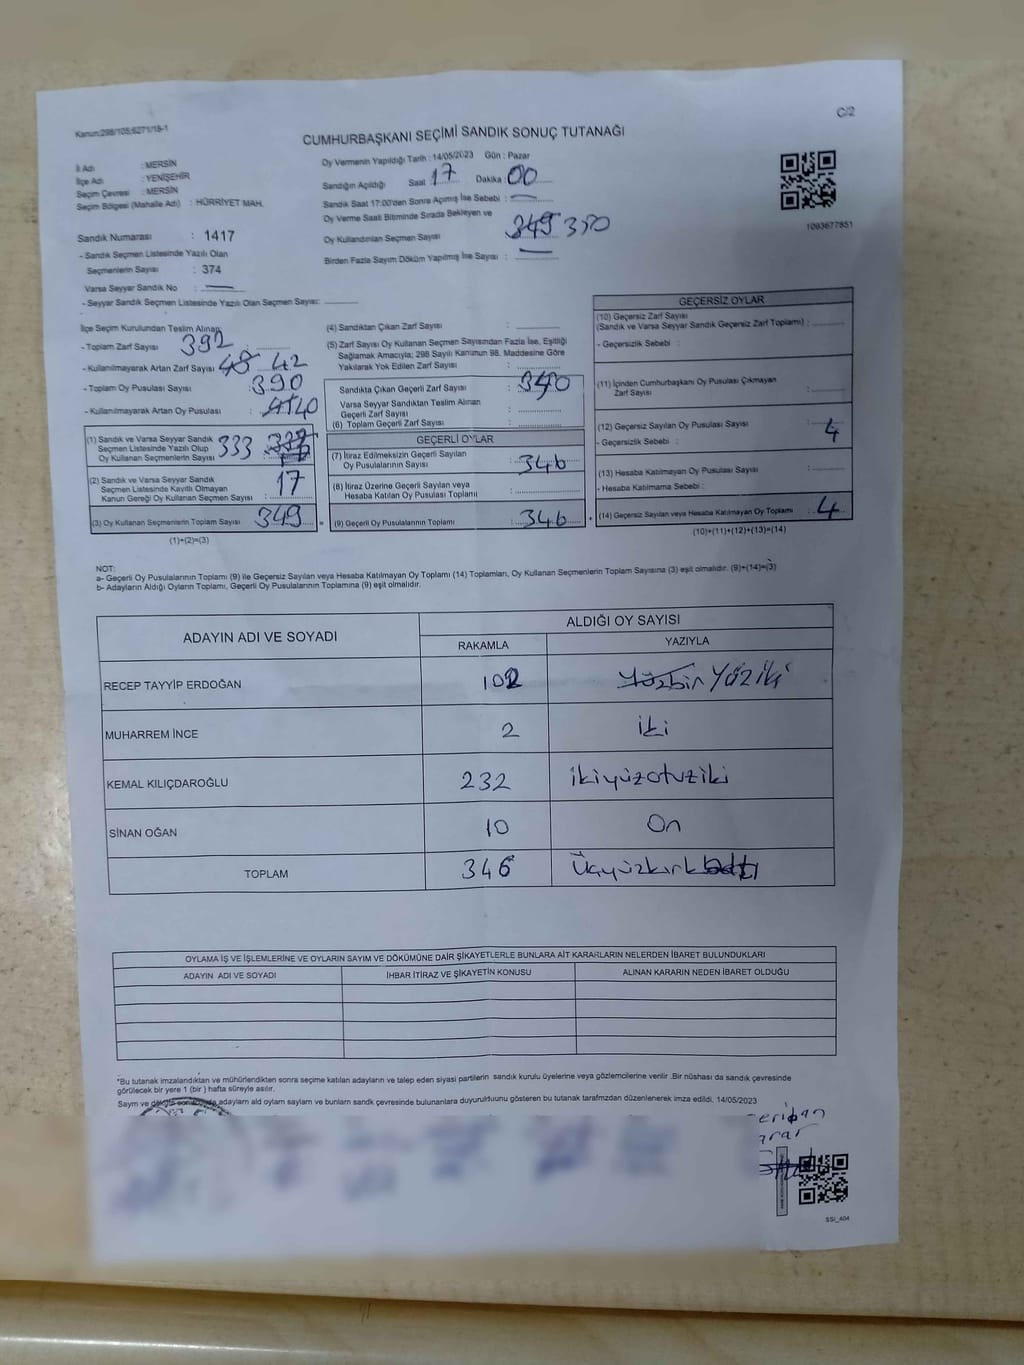 Kanun:298/105;6271/18-1
C/2
CUMHURBAŞKANI SEÇİMİ SANDIK SONUÇ TUTANAĞI
İl Adı : MERSİN
İlçe Adı : YENİŞEHİR
Seçim Çevresi : MERSİN
Seçim Bölgesi (Mahalle Adı) : HÜRRİYET MAH.
Sandık Numarası : 1417
- Sandık Seçmen Listesinde Yazılı Olan
Seçmenlerin Sayısı : 374
Varsa Seyyar Sandık No :
- Seyyar Sandık Seçmen Listesinde Yazılı Olan Seçmen Sayısı:
Oy Vermenin Yapıldığı Tarih : 14/05/2023 Gün : Pazar
Sandığın Açıldığı Saat 17 Dakika 00
Sandık Saat 17:00'den Sonra Açımış İse Sebebi :
Oy Verme Saati Bitiminde Sırada Bekleyen ve
Oy Kullandırılan Seçmen Sayısı 349 350
Birden Fazla Sayım Döküm Yapılmış İse Sayısı :
1093677851
İlçe Seçim Kurulundan Teslim Alınan;
- Toplam Zarf Sayısı 392
- Kullanılmayarak Artan Zarf Sayısı 42
- Toplam Oy Pusulası Sayısı : 390
- Kullanılmayarak Artan Oy Pusulası : 40
(1) Sandık ve Varsa Seyyar Sandık
Seçmen Listesinde Yazılı Olup
Oy Kullanan Seçmenlerin Sayısı 333
(2) Sandık ve Varsa Seyyar Sandık
Seçmen Listesinde Kayıtlı Olmayan
Kanun Gereği Oy Kullanan Seçmen Sayısı : 17
(3) Oy Kullanan Seçmenlerin Toplam Sayısı 349
(1)+(2)=(3)
(4) Sandıktan Çıkan Zarf Sayısı :
(5) Zarf Sayısı Oy Kullanan Seçmen Sayısından Fazla İse, Eşitliği
Sağlamak Amacıyla; 298 Sayılı Kanunun 98. Maddesine Göre
Yakılarak Yok Edilen Zarf Sayısı :
Sandıkta Çıkan Geçerli Zarf Sayısı :
Varsa Seyyar Sandıktan Teslim Alınan
Geçerli Zarf Sayısı :
(6) Toplam Geçerli Zarf Sayısı :
GEÇERLİ OYLAR
(7) İtiraz Edilmeksizin Geçerli Sayılan
Oy Pusulalarının Sayısı : 346
(8) İtiraz Üzerine Geçerli Sayılan veya
Hesaba Katılan Oy Pusulası Toplamı :
(9) Geçerli Oy Pusulalarının Toplamı : 346
GEÇERSİZ OYLAR
(10) Geçersiz Zarf Sayısı
(Sandık ve Varsa Seyyar Sandık Geçersiz Zarf Toplamı) :
- Geçersizlik Sebebi :
(11) İçinden Cumhurbaşkanı Oy Pusulası Çıkmayan
Zarf Sayısı :
(12) Geçersiz Sayılan Oy Pusulası Sayısı : 4
- Geçersizlik Sebebi :
(13) Hesaba Katılmayan Oy Pusulası Sayısı :
- Hesaba Katılmama Sebebi :
(14) Geçersiz Sayılan veya Hesaba Katılmayan Oy Toplamı : 4
(10)+(11)+(12)+(13)=(14)
NOT:
a- Geçerli Oy Pusulalarının Toplamı (9) ile Geçersiz Sayılan veya Hesaba Katılmayan Oy Toplamı (14) Toplamları, Oy Kullanan Seçmenlerin Toplam Sayısına (3) eşit olmalıdır. (9)+(14)=(3)
b- Adayların Aldığı Oyların Toplamı, Geçerli Oy Pusulalarının Toplamına (9) eşit olmalıdır.
ADAYIN ADI VE SOYADI
ALDIĞI OY SAYISI
RAKAMLA YAZIYLA
RECEP TAYYİP ERDOĞAN 102 Yüzbin Yüziki
MUHARREM İNCE 2 iki
KEMAL KILIÇDAROĞLU 232 ikiyüzotuziki
SİNAN OĞAN 10 On
TOPLAM 346 Üçyüzkırkaltı
OYLAMA İŞ VE İŞLEMLERİNE VE OYLARIN SAYIM VE DÖKÜMÜNE DAİR ŞİKAYETLERLE BUNLARA AİT KARARLARIN NELERDEN İBARET BULUNDUKLARI
ADAYIN ADI VE SOYADI İHBAR İTİRAZ VE ŞİKAYETİN KONUSU ALINAN KARARIN NEDEN İBARET OLDUĞU
*Bu tutanak imzalandıktan ve mühürlendikten sonra seçime katılan adayların ve talep eden siyasi partilerin sandık kurulu üyelerine veya gözlemcilerine verilir .Bir nüshası da sandık çevresinde
görülecek bir yere 1 (bir ) hafta süreyle asılır.
Sayım ve döküm sonunda adayların aldığı oyların sayıları ve bunların sandık çevresinde bulunanlara duyurulduğunu gösteren bu tutanak tarafımızdan düzenlenerek imza edildi. 14/05/2023
SSİ_404